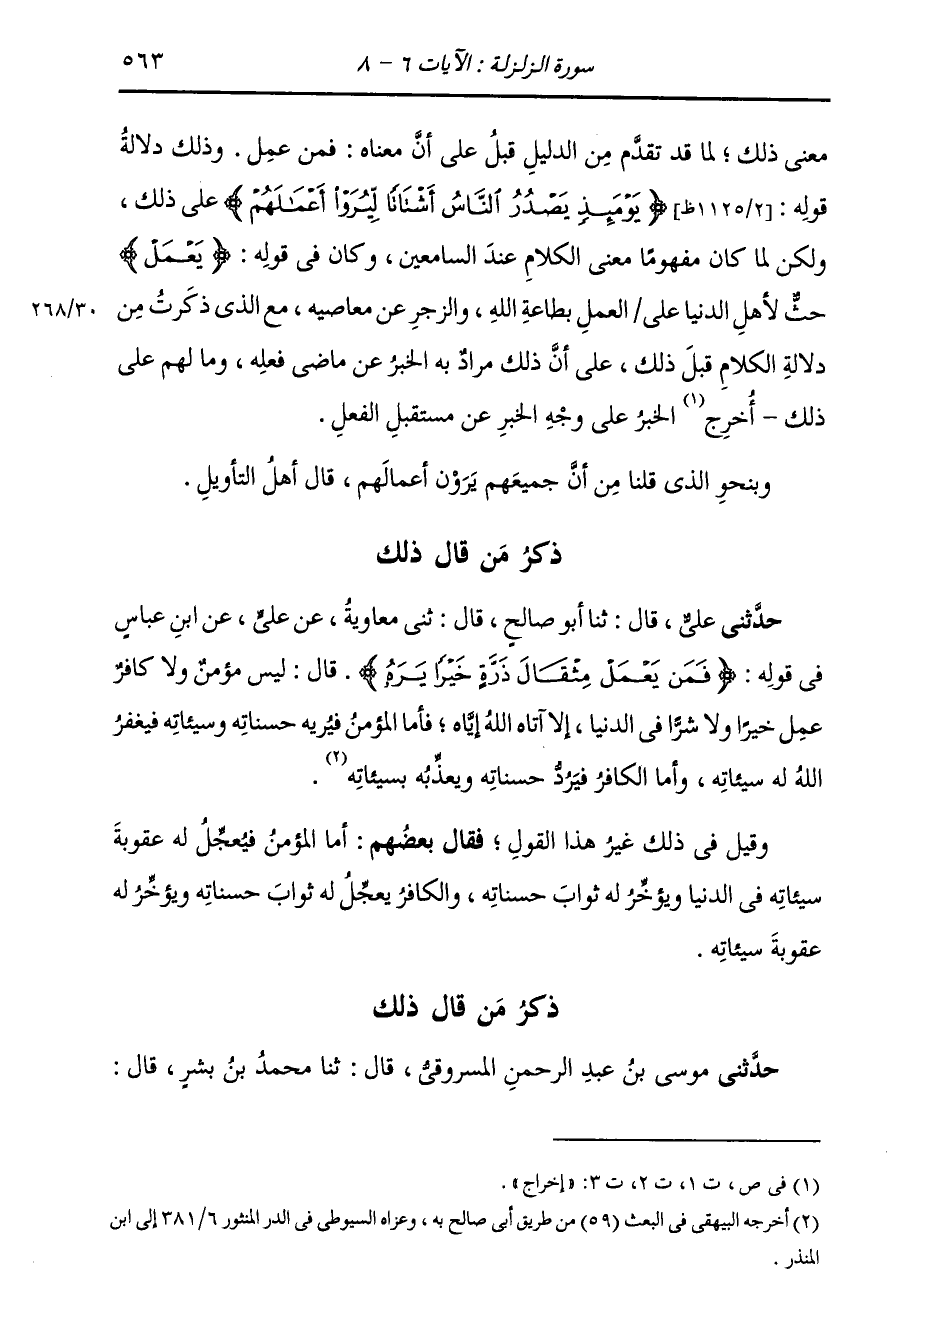 سورة الزلزلة : الآيات ٦ - ٨
٥٦٣
معنى ذلك ؛ لما قد تقدَّم مِن الدليلِ قبلُ على أنَّ معناه : فمن عمِل . وذلك دلالةُ
قولِه : [١١٢٥/٢ظ] ﴿ يَوْمَئِذٍ يَصْدُرُ ٱلنَّاسُ أَشْتَاتًا لِّيُرَوْا۟ أَعْمَـٰلَهُمْ ﴾ على ذلك ،
ولكن لما كان مفهومًا معنى الكلامِ عندَ السامعين ، وكان فى قولِه : ﴿ يَعْمَلْ ﴾
حثٌّ لأهلِ الدنيا على/ العملِ بطاعةِ اللهِ ، والزجرِ عن معاصيه ، مع الذى ذكَرتُ مِن
٢٦٨/٣٠
دلالةِ الكلامِ قبلَ ذلك ، على أنَّ ذلك مرادٌ به الخبرُ عن ماضى فعلِه ، وما لهم على
ذلك - أُخرِج(١) الخبرُ على وجْهِ الخبرِ عن مستقبلِ الفعلِ .
وبنحوِ الذى قلنا مِن أنَّ جميعَهم يَرَوْن أعمالَهم ، قال أهلُ التأويلِ .
ذكرُ مَن قال ذلك
حدَّثنى علىٌّ ، قال : ثنا أبو صالحٍ ، قال : ثنى معاويةُ ، عن علىٍّ ، عن ابنِ عباسٍ
فى قولِه : ﴿ فَمَن يَعْمَلْ مِثْقَالَ ذَرَّةٍ خَيْرًا يَرَهُۥ ﴾ . قال : ليس مؤمنٌ ولا كافرٌ
عمِل خيرًا ولا شرًّا فى الدنيا ، إلا آتاه اللهُ إيَّاه ؛ فأما المؤمنُ فيُريه حسناتِه وسيئاتِه فيغفرُ
اللهُ له سيئاتِه ، وأما الكافرُ فيَرُدُّ حسناتِه ويعذِّبُه بسيئاتِه(٢) .
وقيل فى ذلك غيرُ هذا القولِ ؛ فقال بعضُهم : أما المؤمنُ فيُعجِّلُ له عقوبةَ
سيئاتِه فى الدنيا ويؤخِّرُ له ثوابَ حسناتِه ، والكافرُ يعجِّلُ له ثوابَ حسناتِه ويؤخِّرُ له
عقوبةَ سيئاتِه .
ذكرُ مَن قال ذلك
حدَّثنى موسى بنُ عبدِ الرحمنِ المسروقىُّ ، قال : ثنا محمدُ بنُ بشرٍ ، قال :
(١) فى ص ، ت ١، ت ٢، ت ٣: «إخراج» .
(٢) أخرجه البيهقى فى البعث (٥٩) من طريق أبى صالح به ، وعزاه السيوطى فى الدر المنثور ٣٨١/٦ إلى ابن
المنذر .